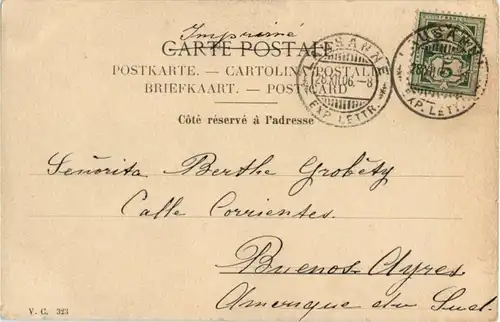 Imprimé
CARTE POSTALE
POSTKARTE. — CARTOLINA POSTALE
BRIEFKAART. — POST CARD
Côté réservé à l'adresse
LAUSANNE
28.XII.06.-8
EXP. LETTR.
LAUSANNE
EXP. LETTR.
5
Señorita Berthe Grobéty
Calle Corrientes.
Buenos-Ayres
Amerique du Sud.
V. C. 323